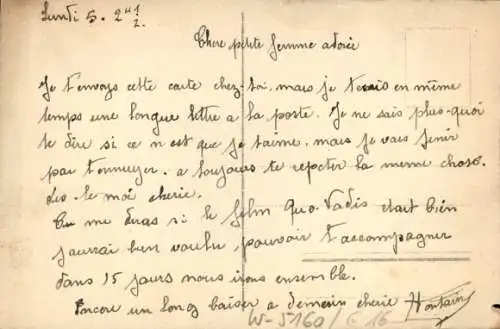 Lundi 5. 2h 1/2.
Chere petite femme adorée
Je t'envoys cette carte chez-toi, mais je t'ecris en même
temps une longue lettre a la poste. Je ne sais plus-quoi
te dire si ce n'est que je t'aime, mais je vais finir
par t'ennuyer. a toujours te repeter la meme chose.
dis-le moi cherie.
Tu me diras si le film Quo-Vadis etait bien
j'aurrai bien voulu, pouvoir t'accompagner
dans 15 jours nous irons ensemble.
Encore un long baiser a demain cherie
W-5160/ 16